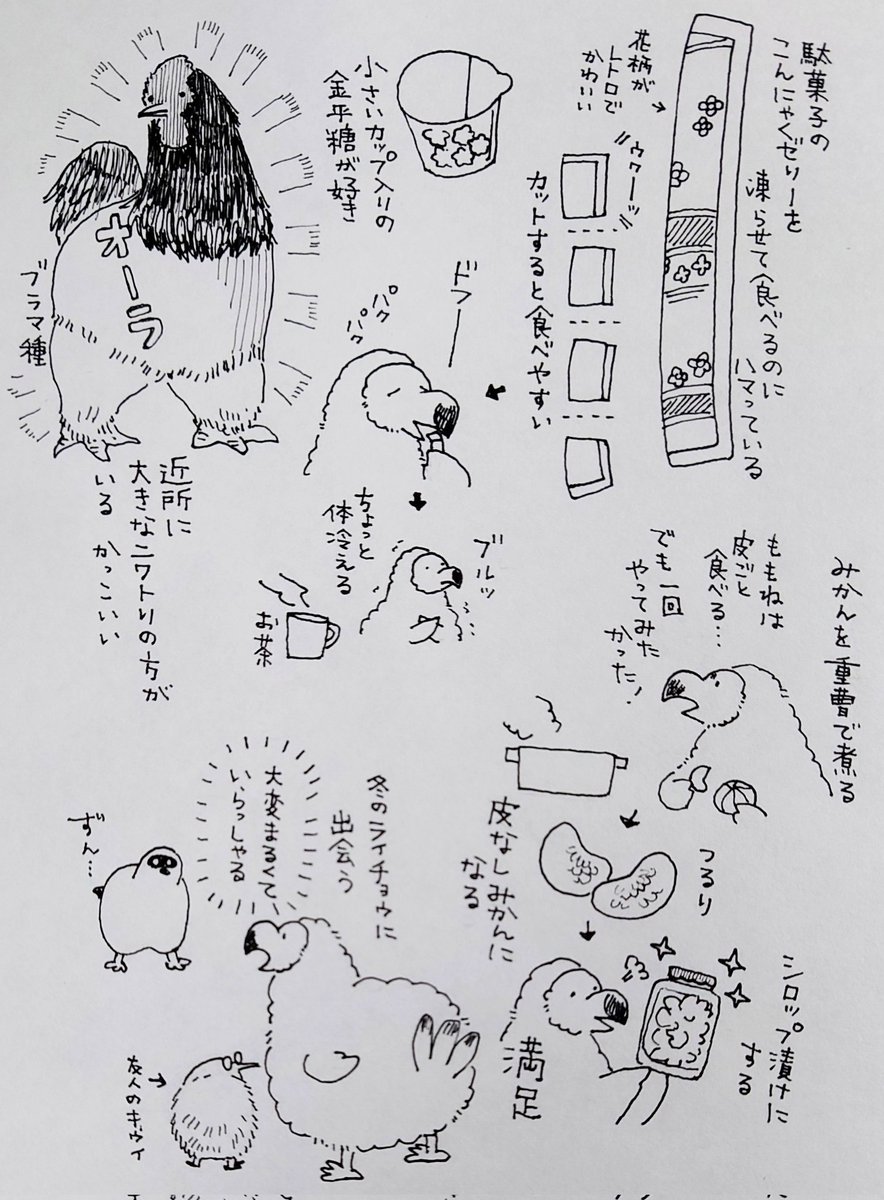 駄菓子の
こんにゃくゼリーを
凍らせて食べるのに
ハマっている
花柄が
レトロで
かわいい
ウワーッ
カットすると食べやすい
小さいカップ入りの
金平糖が好き
ドフー
パク
パク
ブルッ
ちょっと
体冷える
お茶
オーラ
ブラマ種
近所に
大きなニワトリの方が
いる かっこいい
みかんを重曹で煮る
ももねは
皮ごと
食べる…
でも一回
やってみた
かった!
つるり
皮なしみかんに
なる
シロップ漬けに
する
満足
冬のライチョウに
出会う
大変まるくて
いらっしゃる
ずん…
友人のキウイ